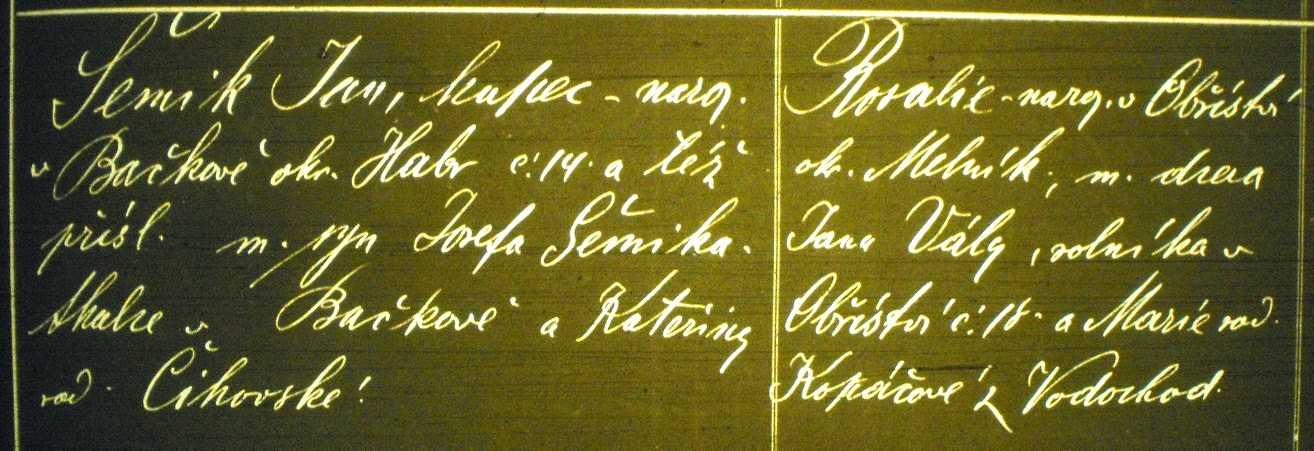 Šemík Jan, kupec - naroz.
v Bačkově okr. Habr č. 14. a též
přísl. m. syn Josefa Šemíka.
tkalce v Bačkově a Kateřiny
rod. Čihovské!
Rosalie - naroz. v Obříství
okr. Mělník; m. dcera
Jana Vály, rolníka v
Obříství č. 18. a Marie rod.
Kopáčové z Vodochod.